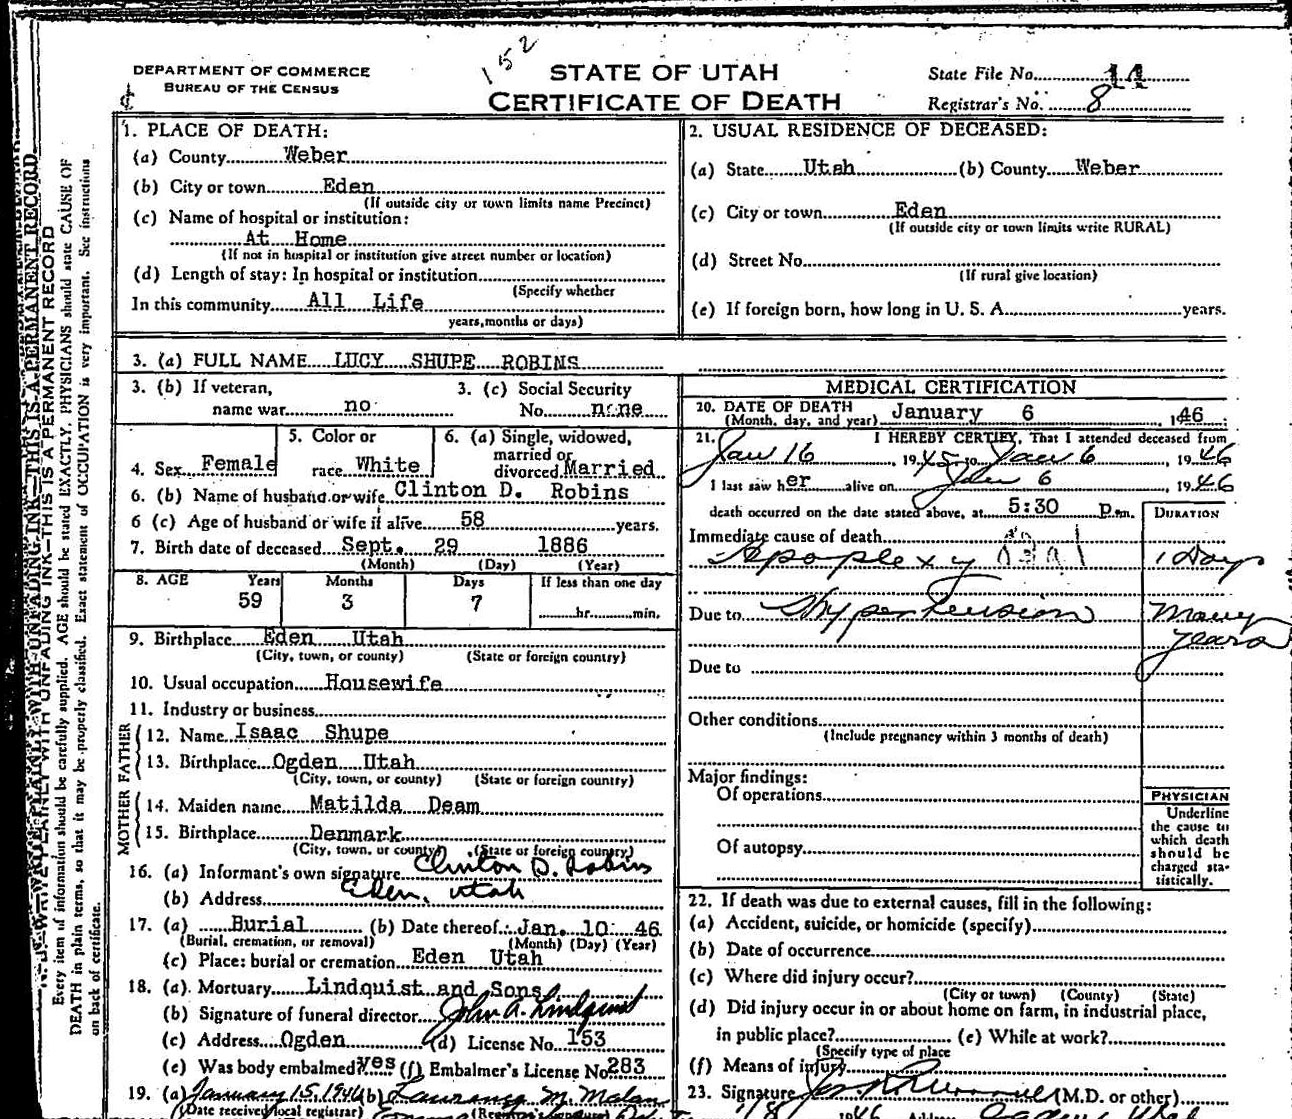 152
DEPARTMENT OF COMMERCE
BUREAU OF THE CENSUS
STATE OF UTAH
CERTIFICATE OF DEATH
State File No. 14
Registrar's No. 8
N. B.—WRITE PLAINLY WITH UNFADING INK—THIS IS A PERMANENT RECORD
Every item of information should be carefully supplied. AGE should be stated EXACTLY. PHYSICIANS should state CAUSE OF
DEATH in plain terms, so that it may be properly classified. Exact statement of OCCUPATION is very important. See instructions
on back of certificate.
1. PLACE OF DEATH:
(a) County Weber
(b) City or town Eden
(If outside city or town limits name Precinct)
(c) Name of hospital or institution:
At Home
(If not in hospital or institution give street number or location)
(d) Length of stay: In hospital or institution
(Specify whether
In this community All Life
years, months or days)
2. USUAL RESIDENCE OF DECEASED:
(a) State Utah (b) County Weber
(c) City or town Eden
(If outside city or town limits write RURAL)
(d) Street No.
(If rural give location)
(e) If foreign born, how long in U. S. A. years.
3. (a) FULL NAME LUCY SHUPE ROBINS
3. (b) If veteran,
name war no
3. (c) Social Security
No. none
4. Sex Female
5. Color or
race White
6. (a) Single, widowed,
married or
divorced Married
6. (b) Name of husband or wife Clinton D. Robins
6 (c) Age of husband or wife if alive 58 years.
7. Birth date of deceased Sept. 29 1886
(Month) (Day) (Year)
8. AGE Years Months Days If less than one day
59 3 7 hr. min.
9. Birthplace Eden Utah
(City, town, or county) (State or foreign country)
10. Usual occupation Housewife
11. Industry or business
FATHER
12. Name Isaac Shupe
13. Birthplace Ogden Utah
(City, town, or county) (State or foreign country)
MOTHER
14. Maiden name Matilda Deam
15. Birthplace Denmark
(City, town, or county) (State or foreign country)
16. (a) Informant's own signature Clinton D. Robins
(b) Address Eden, Utah
17. (a) Burial (b) Date thereof Jan. 10 46
(Burial, cremation, or removal) (Month) (Day) (Year)
(c) Place: burial or cremation Eden Utah
18. (a) Mortuary Lindquist and Sons
(b) Signature of funeral director John A. Lindquist
(c) Address Ogden (d) License No. 153
(e) Was body embalmed? yes (f) Embalmer's License No. 283
19. (a) January 15, 1946 (b) Laurance M. Malan
(Date received local registrar) (Registrar's signature)
MEDICAL CERTIFICATION
20. DATE OF DEATH
(Month, day, and year) January 6, 1946
21. I HEREBY CERTIFY, That I attended deceased from
Jan 16, 1945 to Jan 6, 1946
I last saw her alive on Jan 6 1946
death occurred on the date stated above, at 5:30 p.m.
DURATION
Immediate cause of death
Apoplexy 1 Day
Due to Hypertension Many
years
Due to
Other conditions
(Include pregnancy within 3 months of death)
Major findings:
Of operations
Of autopsy
PHYSICIAN
Underline
the cause to
which death
should be
charged sta-
tistically.
22. If death was due to external causes, fill in the following:
(a) Accident, suicide, or homicide (specify)
(b) Date of occurrence
(c) Where did injury occur?
(City or town) (County) (State)
(d) Did injury occur in or about home on farm, in industrial place,
in public place? (e) While at work?
(Specify type of place
(f) Means of injury
23. Signature (M.D. or other)
1/8 1946